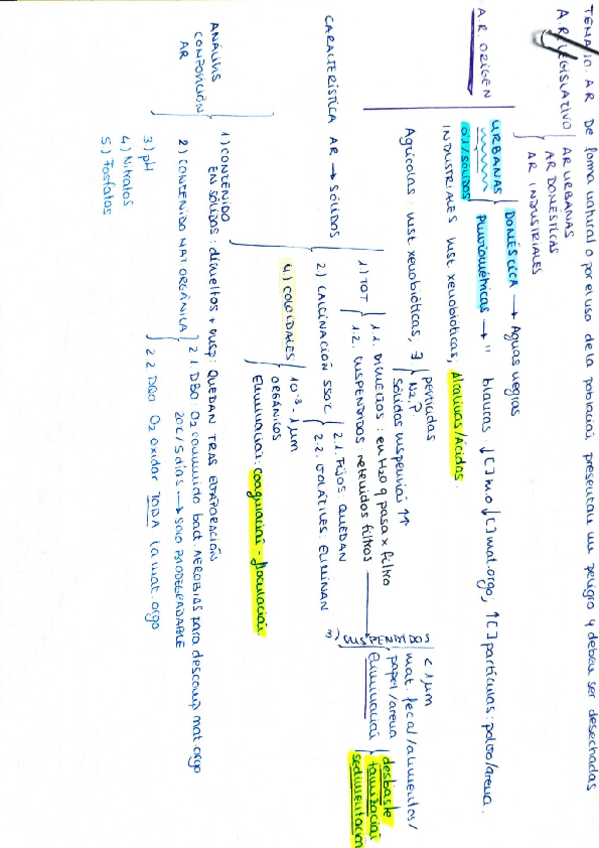 TEMA 10. AR De forma natural o por el uso de la población, presentan un peligro y deben ser desechadas
A.R. LEGISLATIVO
AR URBANAS
AR DOMÉSTICAS
AR INDUSTRIALES
A.R. ORIGEN
URBANAS
DOMÉSTICA → Aguas negras
Pluviométricas → " blancas. ↓[ ] mo ↓[ ] mat. orgo; ↑[ ] partículas: polvo/arena.
INDUSTRIALES sust. xenobioticas, Alcalinas/Ácidas.
Agrícolas: sust. xenobióticas,
pesticidas
N2, P
sólidos suspensión ↑↑
CARACTERÍSTICA AR → SÓLIDOS
1) TOT
1.1. DISUELTOS: en H2O q pasa x filtro
1.2. SUSPENDIDOS: retenidos filtros
2) CALCINACIÓN 550ºC
2.1. FIJOS: QUEDAN
2.2. VOLÁTILES: ELIMINAN
3) SUSPENDIDOS
< 1μm
mat. fecal/alimentos/
papel/arena
Eliminación
desbaste
tamización
sedimentación
4.) COLOIDALES
10⁻³ - 1 μm
ORGÁNICOS
Eliminación: coagulación - floculación
ANÁLISIS
COMPOSICIÓN
AR
1) CONTENIDO
EN SÓLIDOS: disueltos + susp: QUEDAN TRAS EVAPORACIÓN
2) CONTENIDO MAT ORGÁNICA
2.1. DBO O2 consumido bact AEROBIAS para descomp mat. orgo
20ºC/5 días → SOLO BIODEGRADABLE
2.2. DBO O2 oxidar TODA la mat. orgo
3) pH
4) Nitratos
5) Fosfatos